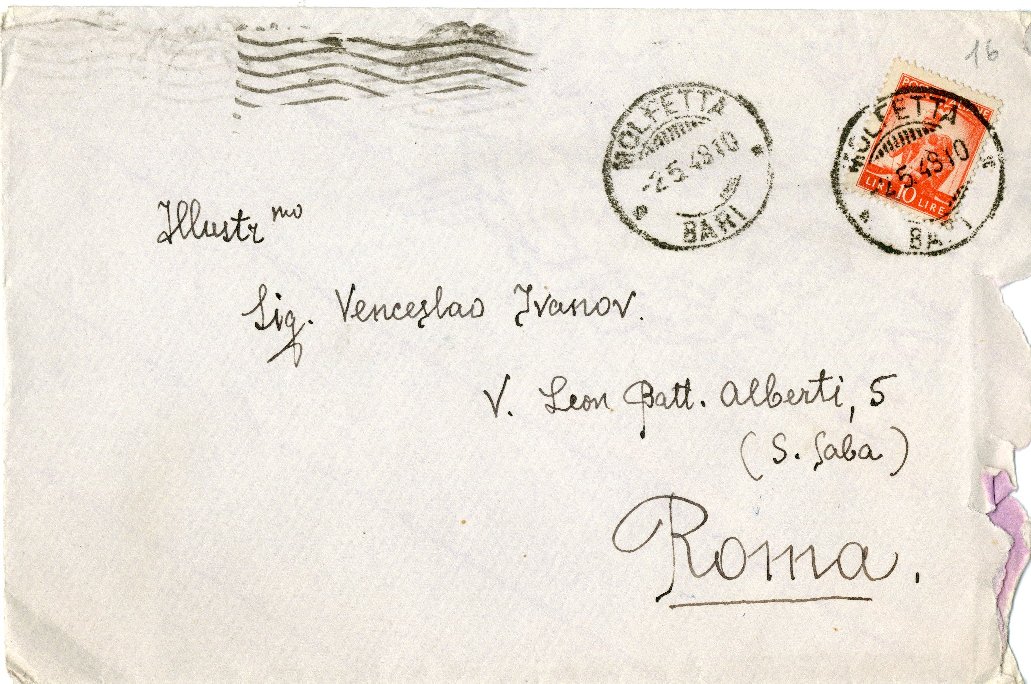 16
MOLFETTA
-2.5.48.10
BARI
POSTE ITALIANE
LIRE 10 LIRE
MOLFETTA
5.48.10
BARI
Illustr mo
Sig. Venceslao Ivanov.
V. Leon Batt. Alberti, 5
(S. Saba)
Roma.